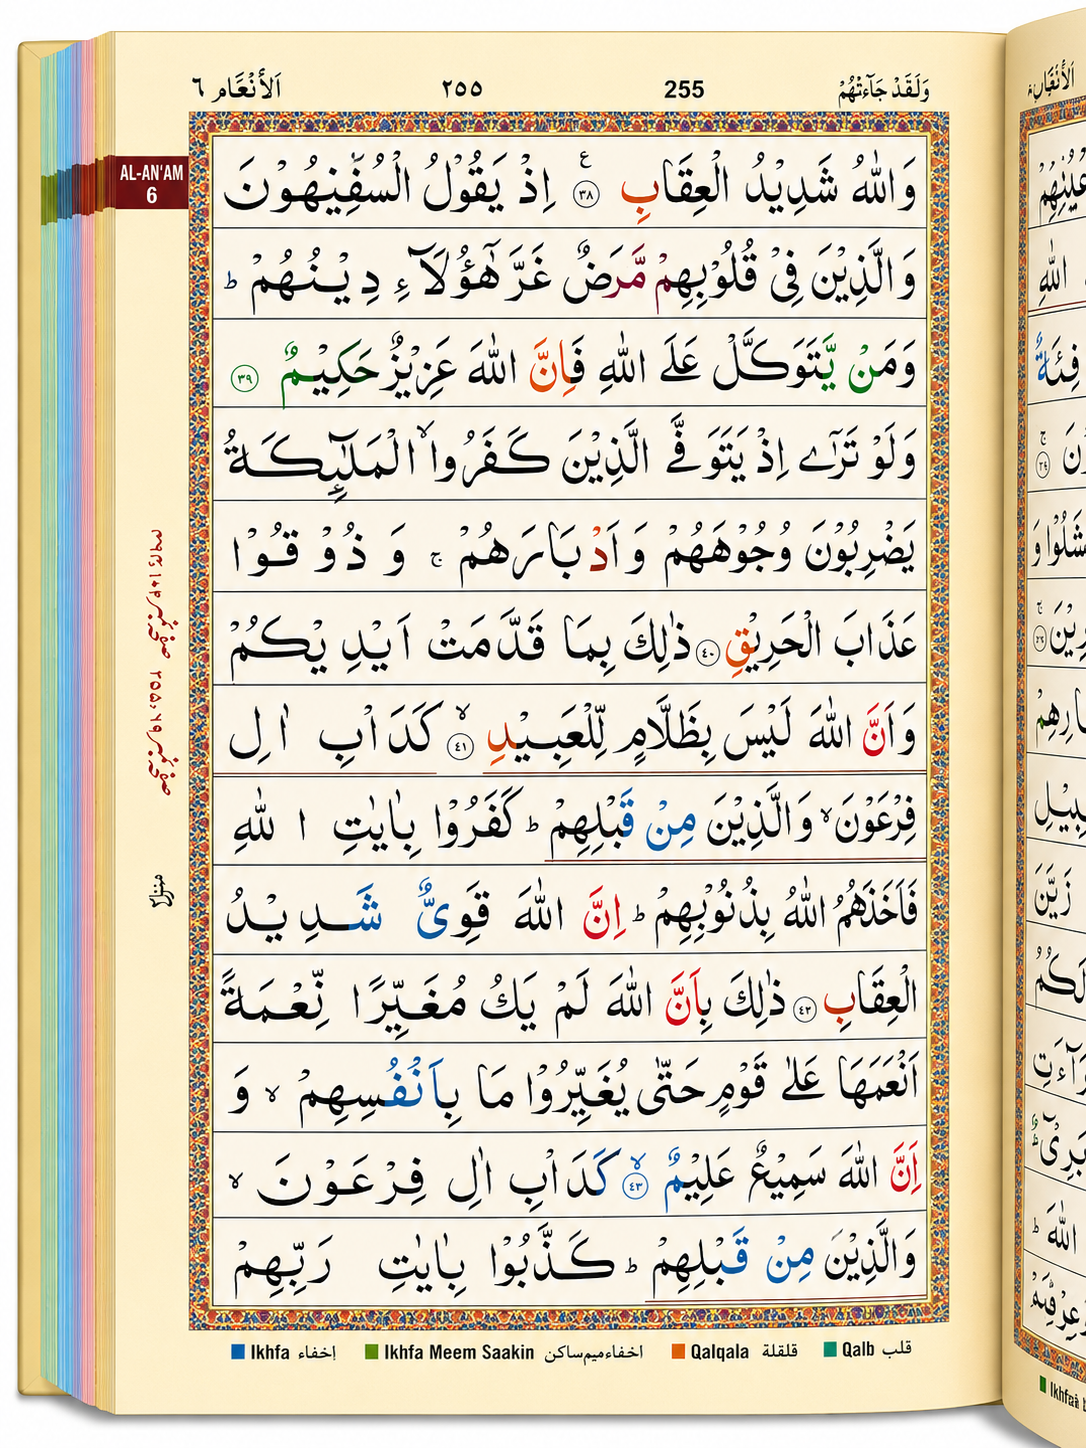 اَلأنْعَام ٦
٢٥٥
255
وَلَقَدْ جَآءَتْهُمْ
AL-AN'AM
6
وَاللّٰهُ شَدِيْدُ الْعِقَابِ ۝٣٨ ع اِذْ يَقُوْلُ السُفِّيْنِهُوْنَ
وَالَّذِيْنَ فِيْ قُلُوْبِهِمْ مَّرَضٌ غَرَّ هٰٓؤُلَآءِ دِيْنُهُمْ ط
وَمَنْ يَّتَوَكَّلْ عَلَى اللّٰهِ فَاِنَّ اللّٰهَ عَزِيْزٌ حَكِيْمٌ ۝٣٩
وَلَوْ تَرٰٓے اِذْ يَتَوَفَّے الَّذِيْنَ كَفَرُوا ۙ الْمَلٰٓئِكَةُ
يَضْرِبُوْنَ وُجُوْهَهُمْ وَاَدْبَارَهُمْ ج وَ ذُوْقُوْا
عَذَابَ الْحَرِيْقِ ۝٤٠ ذٰلِكَ بِمَا قَدَّمَتْ اَيْدِيْكُمْ
وَاَنَّ اللّٰهَ لَيْسَ بِظَلَّامٍ لِّلْعَبِيْدِ ۙ ۝٤١ كَدَاْبِ اٰلِ
فِرْعَوْنَ ۙ وَالَّذِيْنَ مِنْ قَبْلِهِمْ ط كَفَرُوْا بِاٰيٰتِ اللّٰهِ
فَاَخَذَهُمُ اللّٰهُ بِذُنُوْبِهِمْ ط اِنَّ اللّٰهَ قَوِيٌّ شَدِيْدُ
الْعِقَابِ ۝٤٢ ذٰلِكَ بِاَنَّ اللّٰهَ لَمْ يَكُ مُغَيِّرًا نِّعْمَةً
اَنْعَمَهَا عَلٰى قَوْمٍ حَتّٰى يُغَيِّرُوْا مَا بِاَنْفُسِهِمْ ۙ وَ
اِنَّ اللّٰهَ سَمِيْعٌ عَلِيْمٌ ۙ ۝٤٣ كَدَاْبِ اٰلِ فِرْعَوْنَ ۙ
وَالَّذِيْنَ مِنْ قَبْلِهِمْ ط كَذَّبُوْا بِاٰيٰتِ رَبِّهِمْ
منزل
Ikhfa إخفاء
Ikhfa Meem Saakin اخفاءميم‌ساكن
Qalqala قلقلة
Qalb قلب